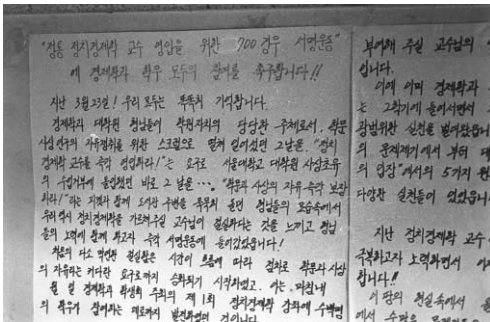 "정통 정치경제학 교수 영입을 위한 700경우 서명운동"
에 경제학과 학우 모두의 참여를 촉구합니다!!
지난 3월23일! 우리모두는 똑똑히 기억합니다.
경제학과 대학원 형님들이 학원자치의 당당한 주체로서, 학문
사상연구의 자유쟁취를 위한 스크럼으로 떨쳐 일어섰던 그날은, "정치
경제학 교수를 즉각 영입하라!"는 요구로 서울대학교 대학원 사상초유
의 수업거부에 돌입했던 바로 그 날은…. "학문과 사상의 자유 즉각 보장
하라!"라는 외침과 함께
우리 역시 정치경제학을 가르쳐주실 교수님이 절실하다는 것을 느끼고 형님
들의 노력에 함께 하고자 즉각 서명운동에 들어갔었습니다!
처음의 다소 막연한 절실함은 시간이 흐름에 따라 점차로 학문과 사상
의 자유라는 커다란 요구로까지 승화되기 시작하였고, 이는 마침내
월 일 경제학과 학생회 주최의 제1회 정치경제학 강좌에 수백명
의 학우가 참여하는 데로까지 발전하였던 것입니다.
부여해 주실 교수님의
입니다.
이에 이미 경제학과
는 2학기에 들어서면서
광범위한 실천을 벌여왔습니
의 문제제기에서 부터 대
의 입장"에서의 5가지 원
다양한 실천들이 있었습니
지난 정치경제학 교수
극복하고자 노력하면서 이제
합니다!!
이 땅의 현실속에서
에서 수많은